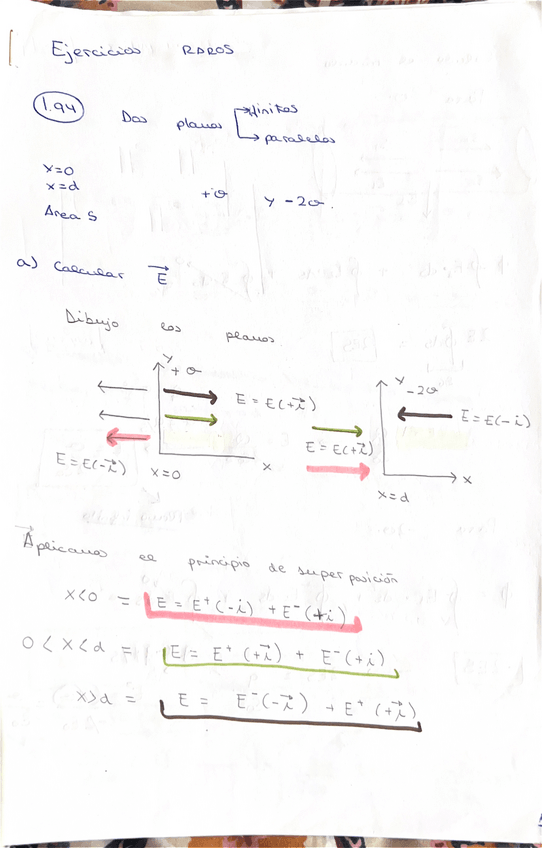 Ejercicios RAROS
1.94 Dos planos → finitos
→ paralelos
x=0
x=d
+σ y -2σ.
Area S
a) Calcular E⃗
Dibujo los planos.
y +σ
E = E(+i⃗)
y -2σ
E = E(-i)
E = E(+i⃗)
E = E(-i⃗)
x=0 x
x
x=d
Aplicamos el principio de superposición
x<0 = E = E⁺(-i) + E⁻(+i)
0 < x < d = E = E⁺(+i⃗) + E⁻(+i)
x>d = E = E⁻(-i⃗) + E⁺(+i⃗)